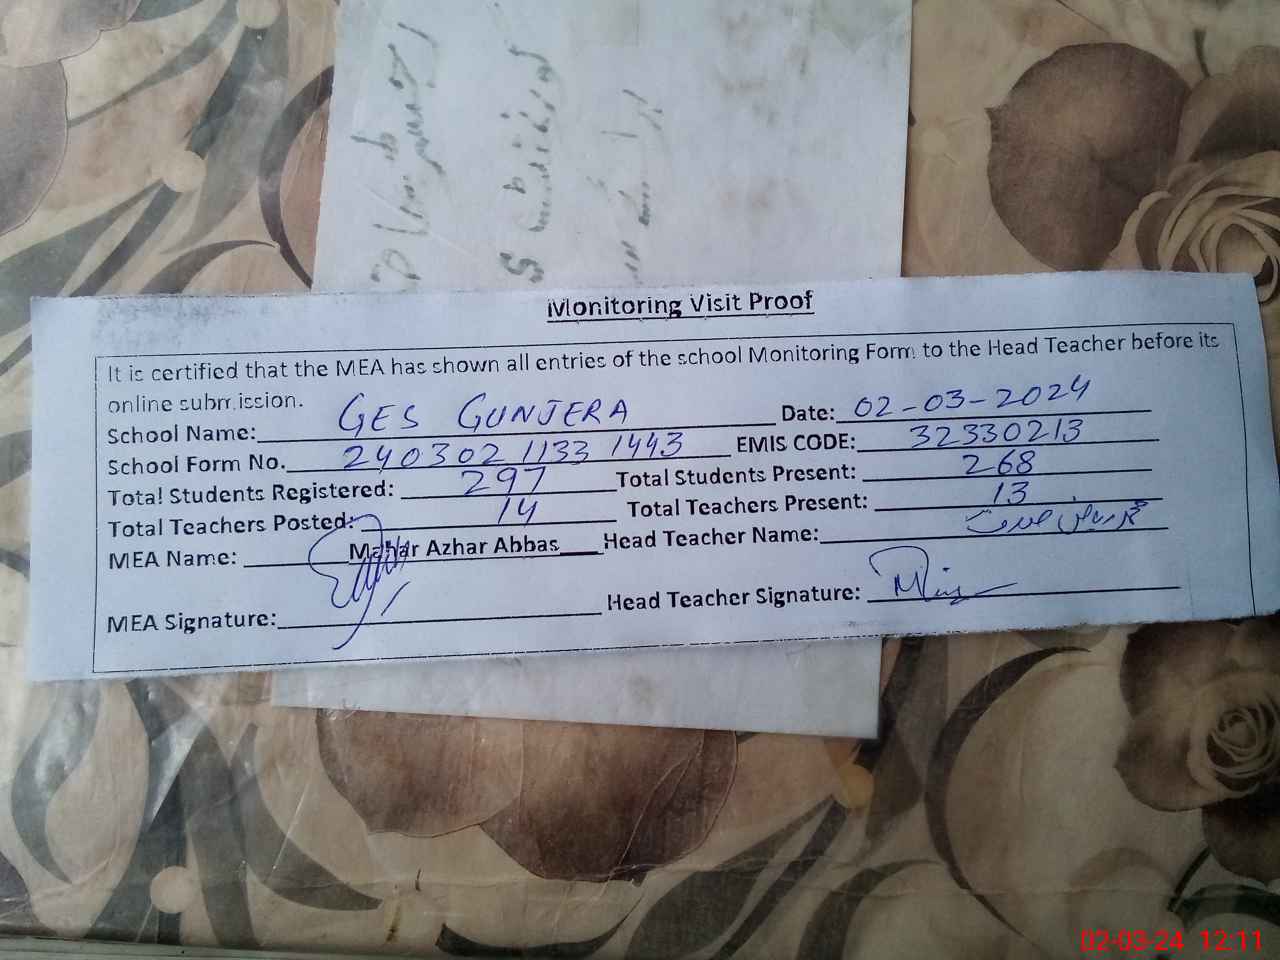 Monitoring Visit Proof
It is certified that the MEA has shown all entries of the school Monitoring Form to the Head Teacher before its
online submission.
School Name: GES GUNJERA Date: 02-03-2024
School Form No. 240302 1133 1443 EMIS CODE: 32330213
Total Students Registered: 297 Total Students Present: 268
Total Teachers Posted: 14 Total Teachers Present: 13
MEA Name: Mahar Azhar Abbas Head Teacher Name:
MEA Signature: Head Teacher Signature:
02-03-24 12:11